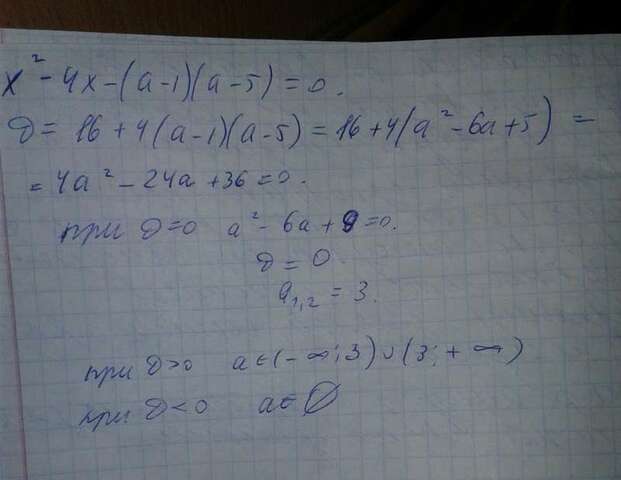 x² - 4x - (a-1)(a-5) = 0.
D = 16 + 4(a-1)(a-5) = 16 + 4(a² - 6a + 5) =
= 4a² - 24a + 36 = 0.
при D=0 a² - 6a + 9 = 0.
D = 0
a₁,₂ = 3.
при D>0 a∈(-∞; 3)∪(3; +∞)
при D<0 a∈∅